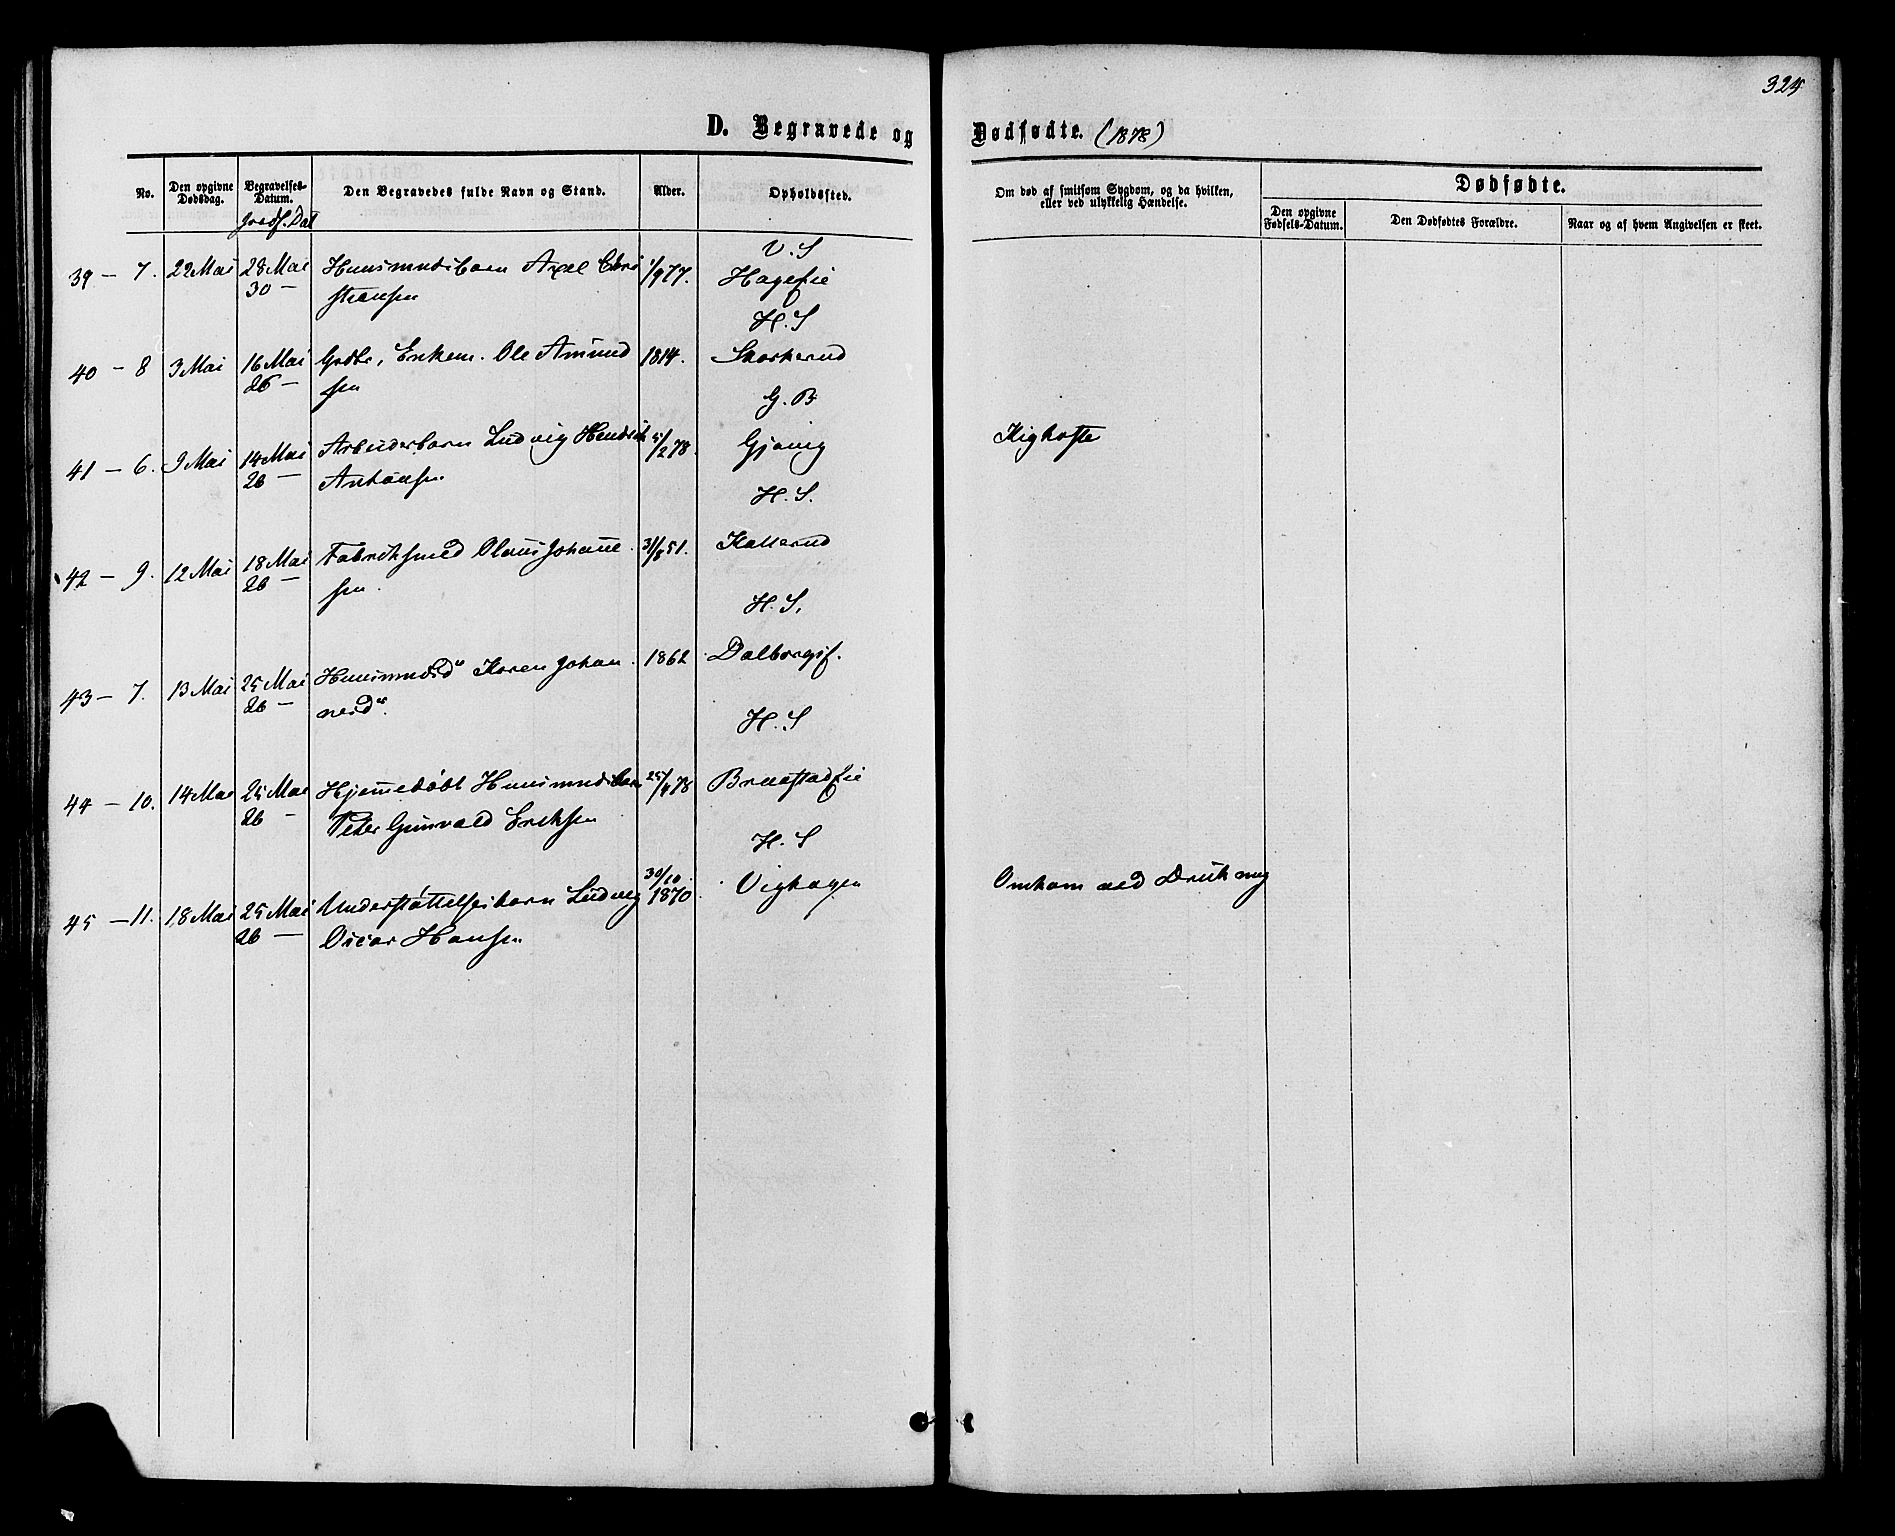 324
D. Begravede og Dødfødte. (1878)
No.
Den opgivne Dødsdag.
Begravelses-Datum.
Jordf. Dat
Den Begravedes fulde Navn og Stand.
Alder.
Opholdssted.
Om død af smitsom Sygdom, og da hvilken,
eller ved ulykkelig Hændelse.
Dødfødte.
Den opgivne Fødsels-Datum.
Den Dødfødtes Forældre.
Naar og af hvem Angivelsen er skeet.
V. S
39 - 7. 22 Mai 28 Mai Huusmndsbarn Axel Chri 1/9 77. Hageeie
30 - stiansen
H. S
40 - 8 3 Mai 16 Mai Gaardbr, Enkem. Ole Amund 1814. Skarkerud
26 - sen
G. B
41 - 6. 9 Mai 14 Mai Arbeiderbarn Ludvig Hendrik 5/2 78. Gjøvig Kighoste
26 - Antonsen
H. S.
42 - 9. 12 Mai 18 Mai Fabriksmed Olaus Johanne 31/8 51. Kallerud
26 - sen.
H. S.
43 - 7. 13 Mai 25 Mai Huusmnsd" Karen Johan 1862 Dalborgsf.
26 - nesd".
H. S
44 - 10. 14 Mai 25 Mai Hjemmedøbt Huusmndsbarn 25/4 78 Braastadeie
26 - Peter Gunvald Eriksen
H. S
45 - 11. 18 Mai 25 Mai Understøttelsesbarn Ludvig 30/10 1870. Vighagen Omkom ved Drukning
26 - Oscar Hansen